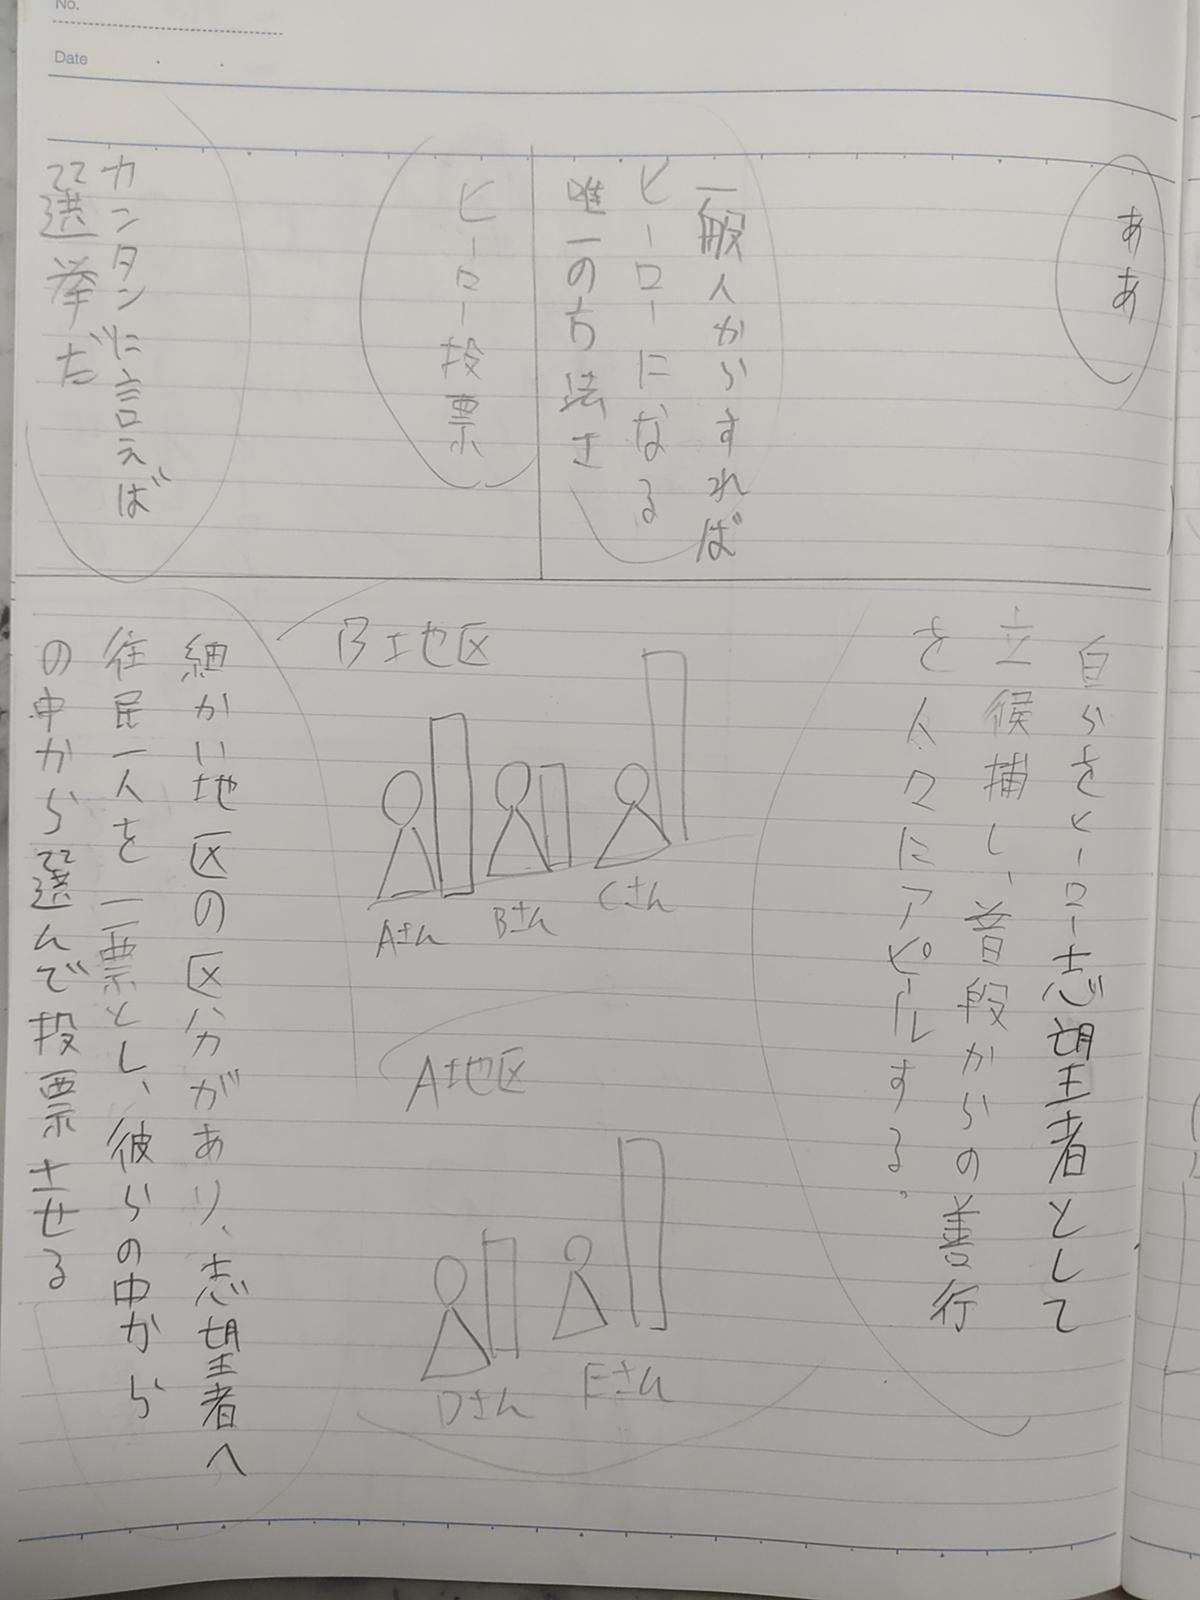 No.
Date
ああ
一般人からすれば
ヒーローになる
唯一の方法さ
ヒーロー投票
カンタンに言えば
選挙だ
自らをヒーロー志望者として
立候捕し、普段からの善行
を人々にアピールする。
B地区
Aさん
Bさん
Cさん
A地区
Dさん
Eさん
細かい地区の区分があり、志望者へ
住民一人を一票とし、彼らの中から
の中から選んで投票させる